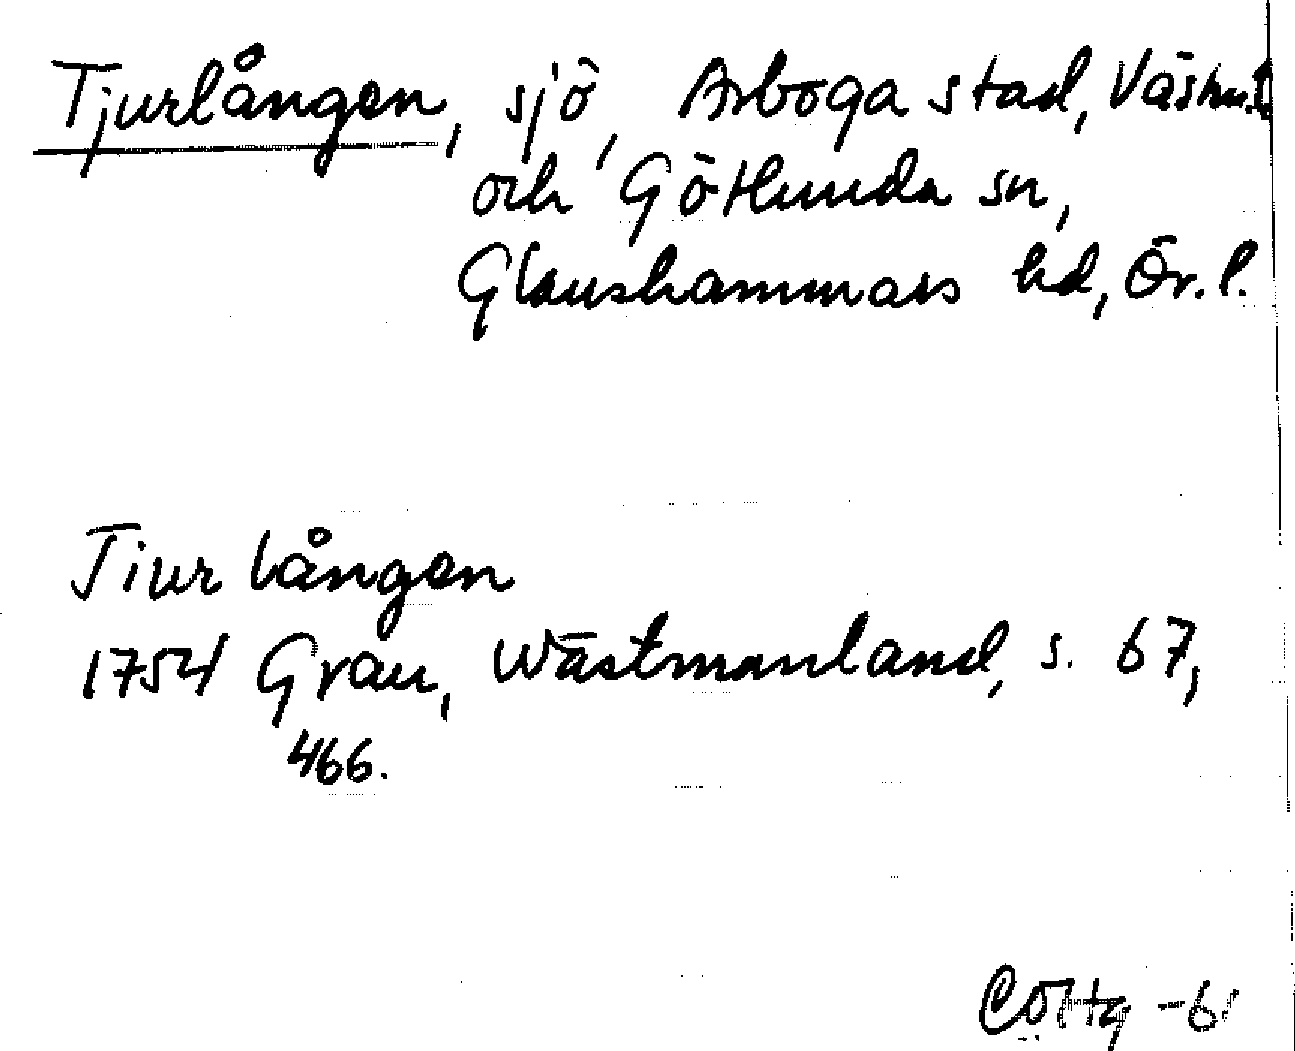 Tjurlången, sjö, Arboga stad, Västm.l
och Götlunda sn,
Glanshammars hd, Ör.l.
Tiur lången
1754 Grau, Wästmanland, s. 67,
466.